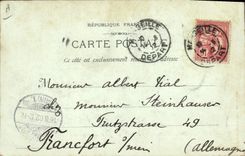 RÉPUBLIQUE FRANÇAISE
CARTE POSTALE
Ce côté est exclusivement réservé à l'adresse
MARSEILLE
DEPART
Monsieur Albert Vial
chez monsieur Steinhauser
Trutzstrasse 49
Francfort s/mein
(Allemagne)